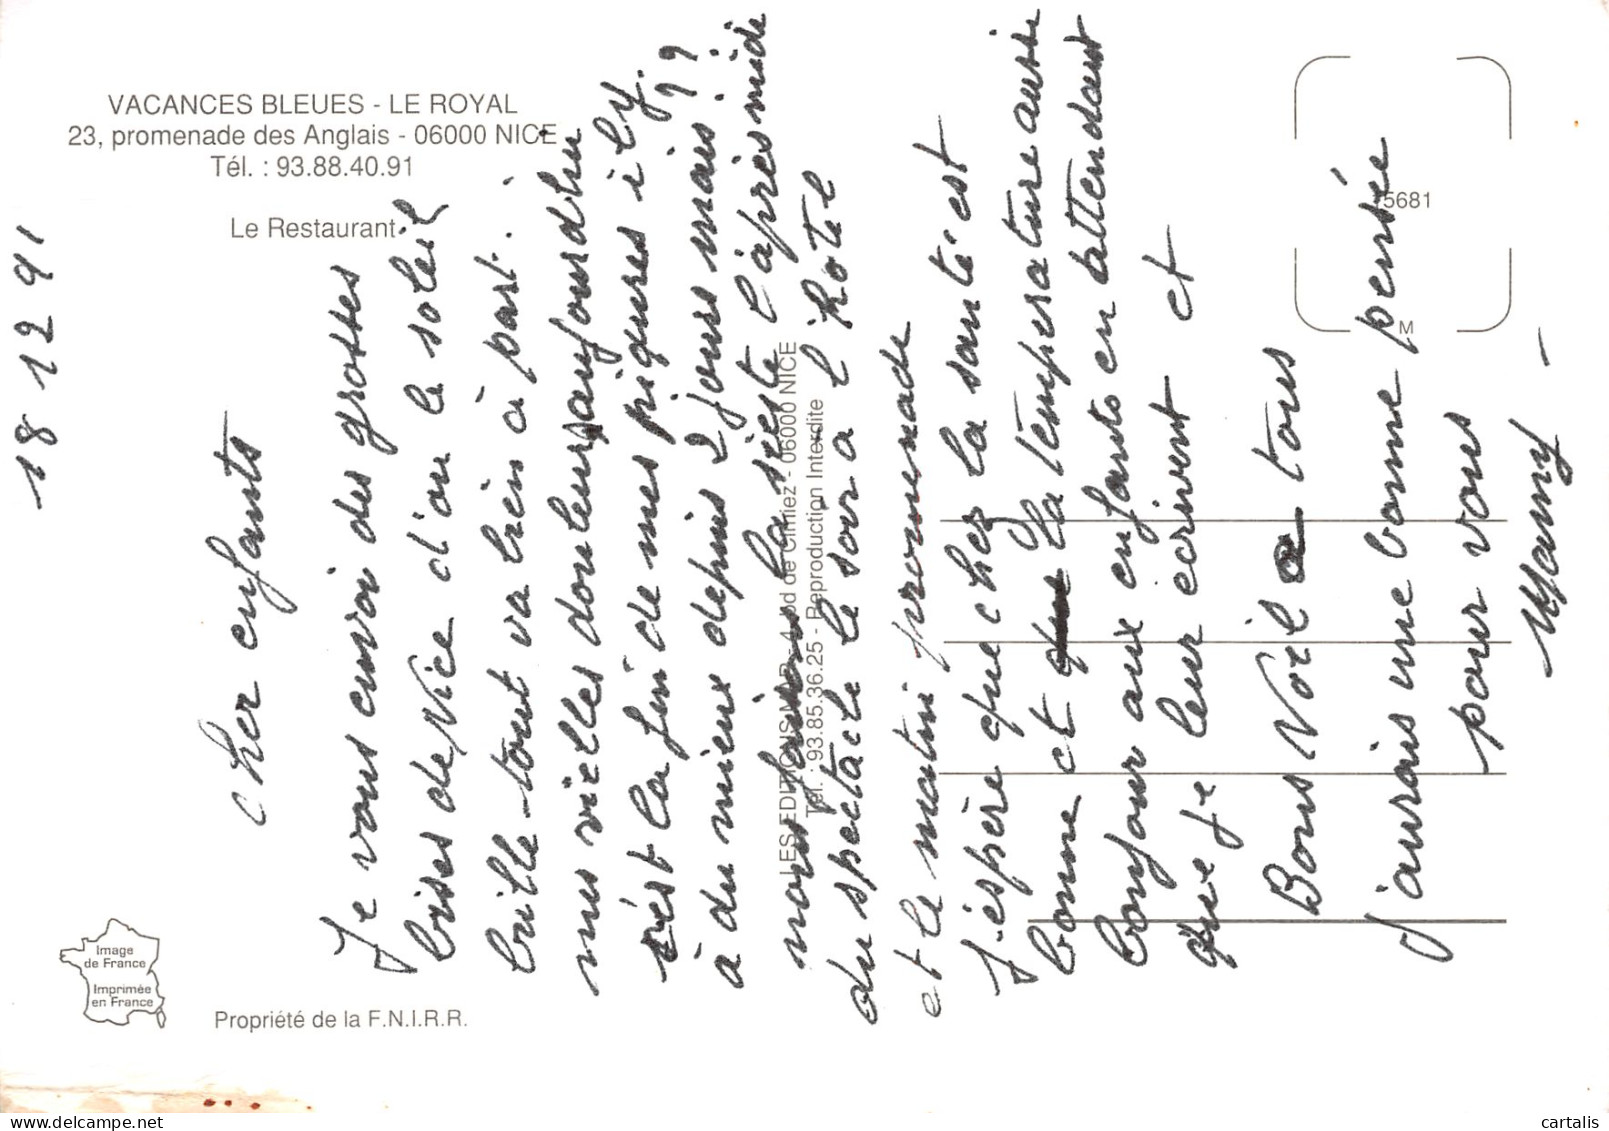 VACANCES BLEUES - LE ROYAL
23, promenade des Anglais - 06000 NICE
Tél. : 93.88.40.91
Le Restaurant
18 12 91
cher enfants
Je vous envoi des grosses
bises de Nice d'ou le soleil
brille - tout va bien à part
mes vielles douleurs aujourdhu
c'est la fin de mes piqures il y
à du mieux depuis 2 jours mais ??
nous faisons la sieste l'après mide
du spectacle le soir a l'hotel
et le matin promenade
J'espère que chez la santé est
bonne et la température aussi
bonjour aux enfants en attendant
que je leur écrivent et
Bons Noël a tous
J'aurais une bonne pensée
pour vous
Mamy -
LES EDITIONS MAR - 4, bd de Cimiez - 06000 NICE
Tél. : 93.85.36.25 - Reproduction Interdite
5681
M
Image
de France
Imprimée
en France
Propriété de la F.N.I.R.R.
cartalis